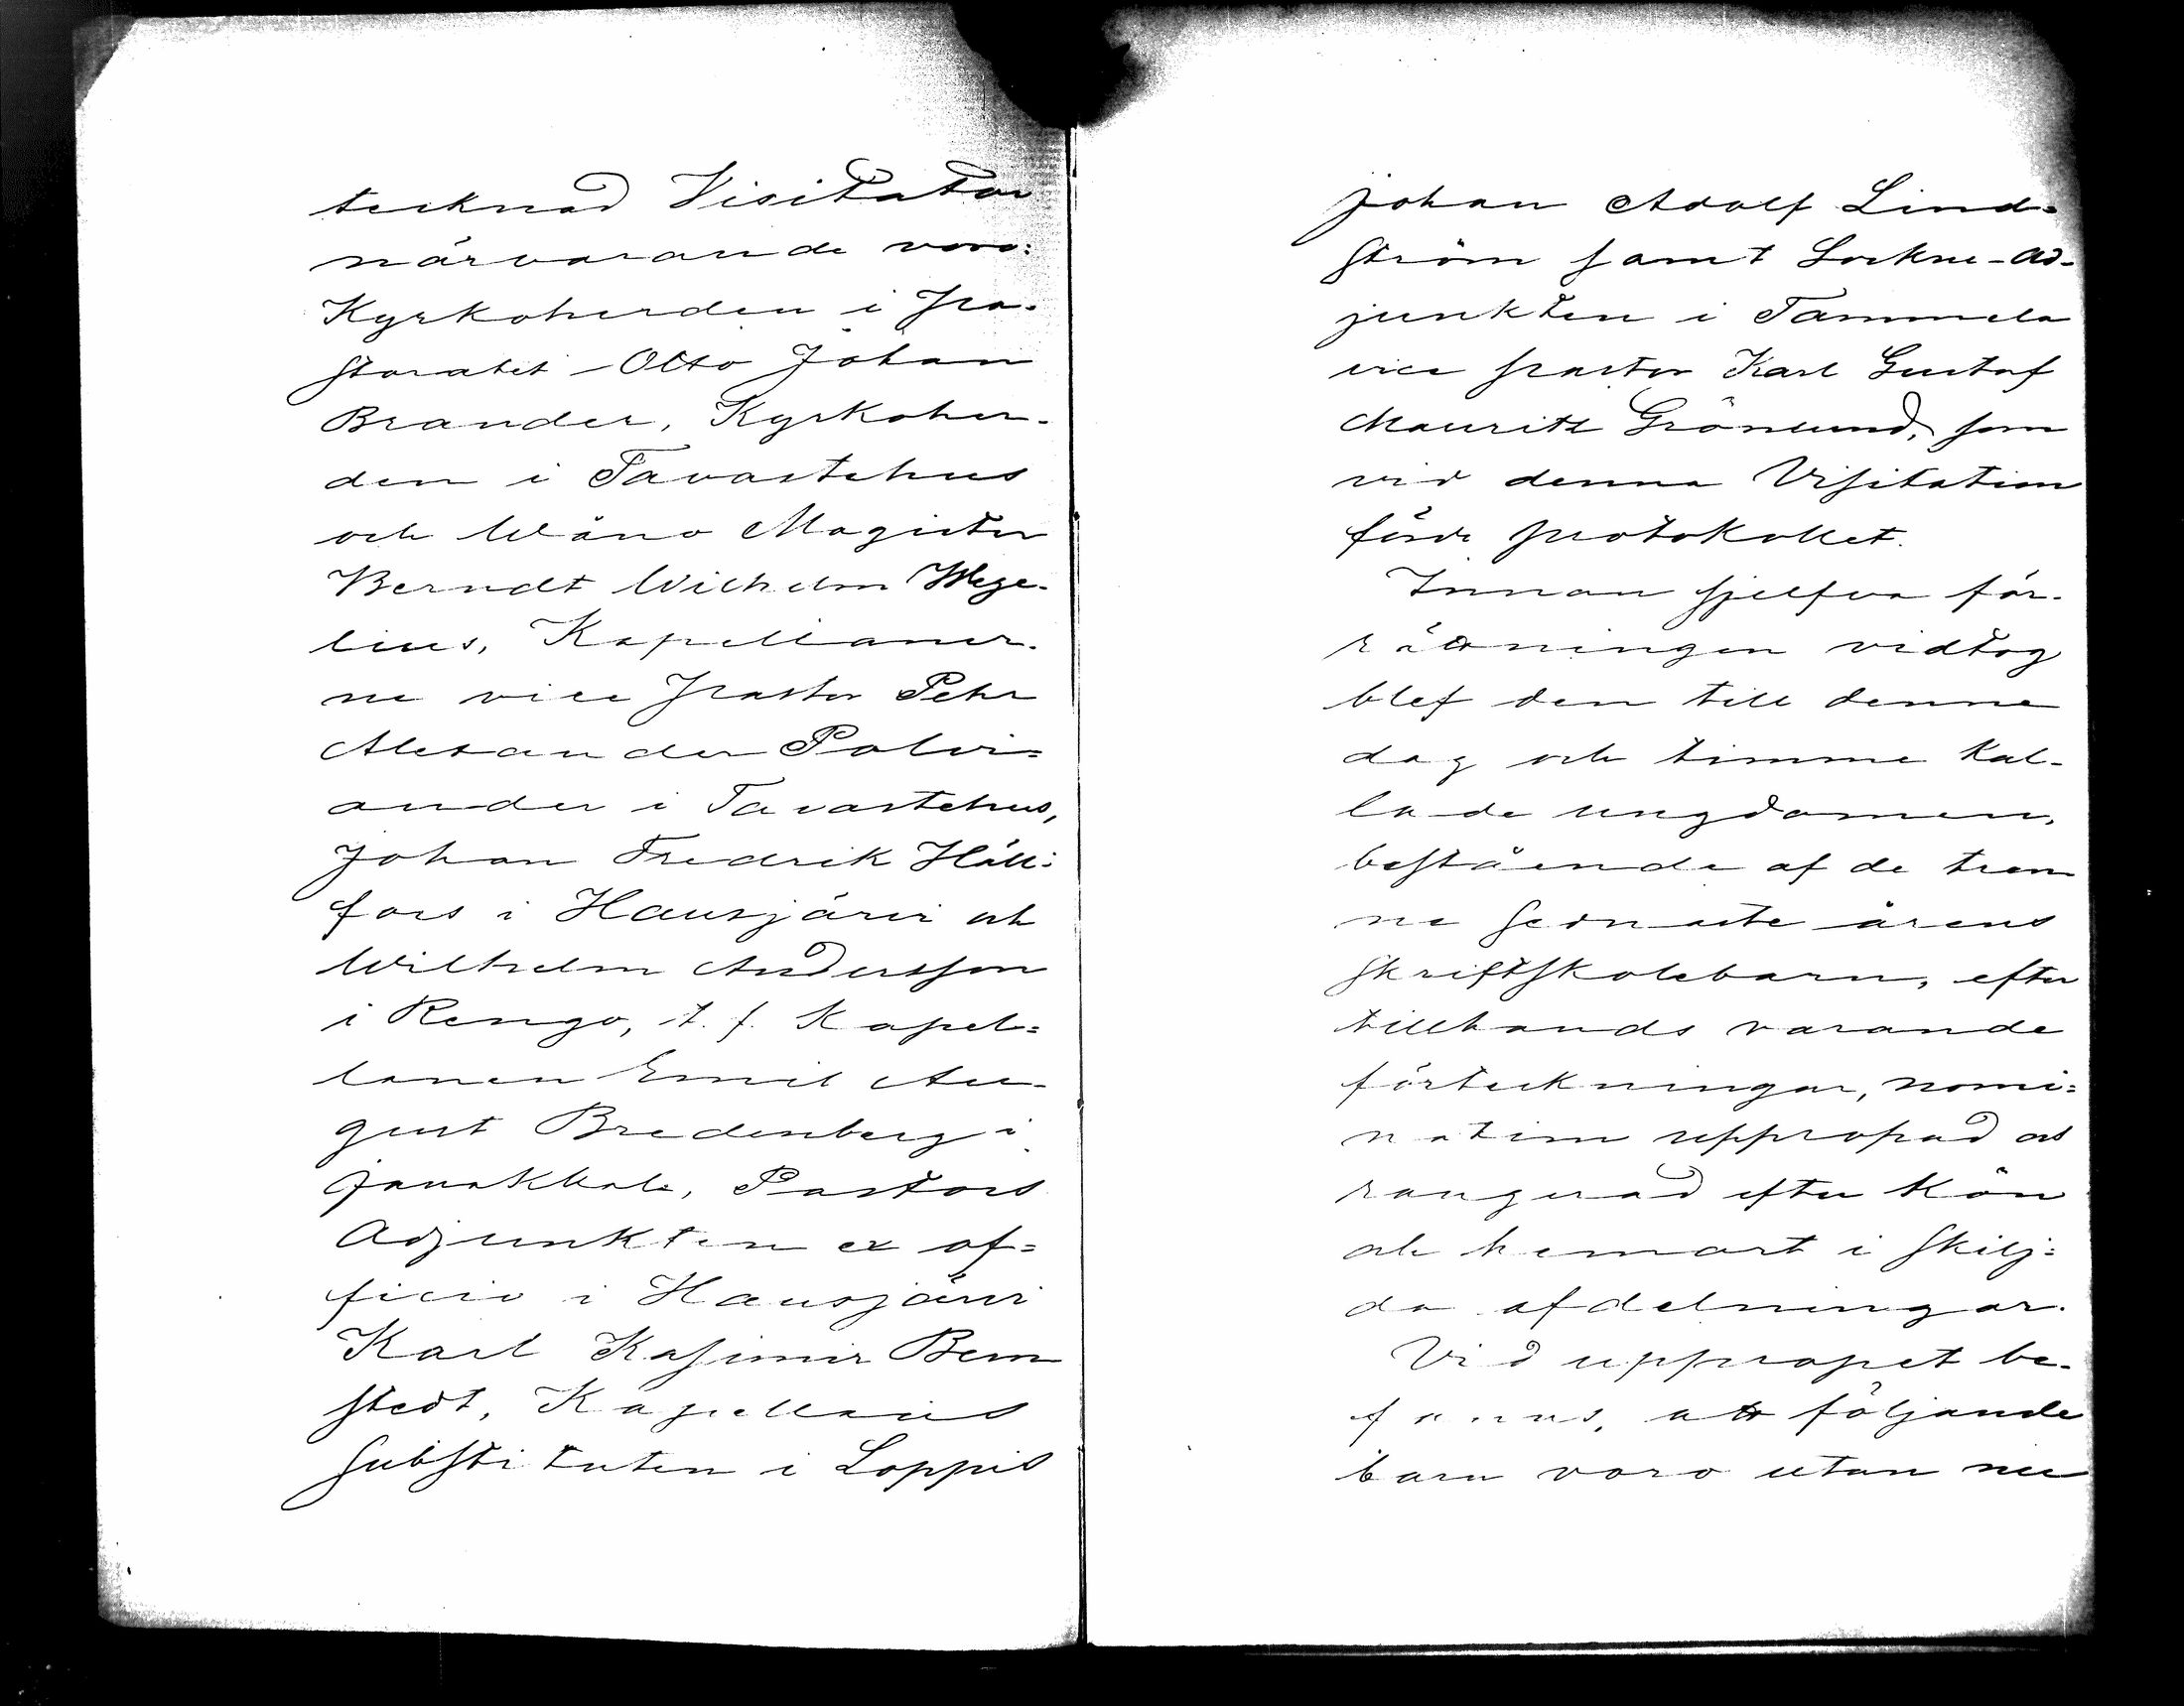 tecknad Visitator
närvarande voro:
Kyrkoherden i Pa-
storatet Otto Johan
Brander, Kyrkoher-
den i Tavastehus
och Wånå Magister
Berndt Wilhelm Wege-
lius, Kapellaner-
ne vice Pastor Petr
Alexander Polvi=
ander i Tavastehus,
Johan Fredrik Häll=
fors i Hausjärvi och
Wilhelm Andersson
i Rengo, t. f. Kapel=
lanen Emil Au-
gust Bredenberg i
Janakkala, Pastors
Adjunkten ex of=
ficio i Hausjärvi
Karl Kasimir Bem
stedt, Kapellans
Substituten i Loppis
Johan Adolf Lind=
ström samt Sockne-Ad-
junkten i Tammela
vice pastor Karl Gustaf
Mauritz Grönlund, som
vid denna Visitation
förde protokollet.
Innan sjelfva för-
rättningen vidtog
blef den till denna
dag och timme kal-
lade ungdomen,
bestående af de tren
ne sednaste årens
Skriftskolebarn, efter
tillhands varande
förteckningar, nomi=
natim uppropad och
rangerad efter kön
och hemort i skilj=
da afdelningar.
Vid uppropet be-
fanns, att följande
barn voro utan nu